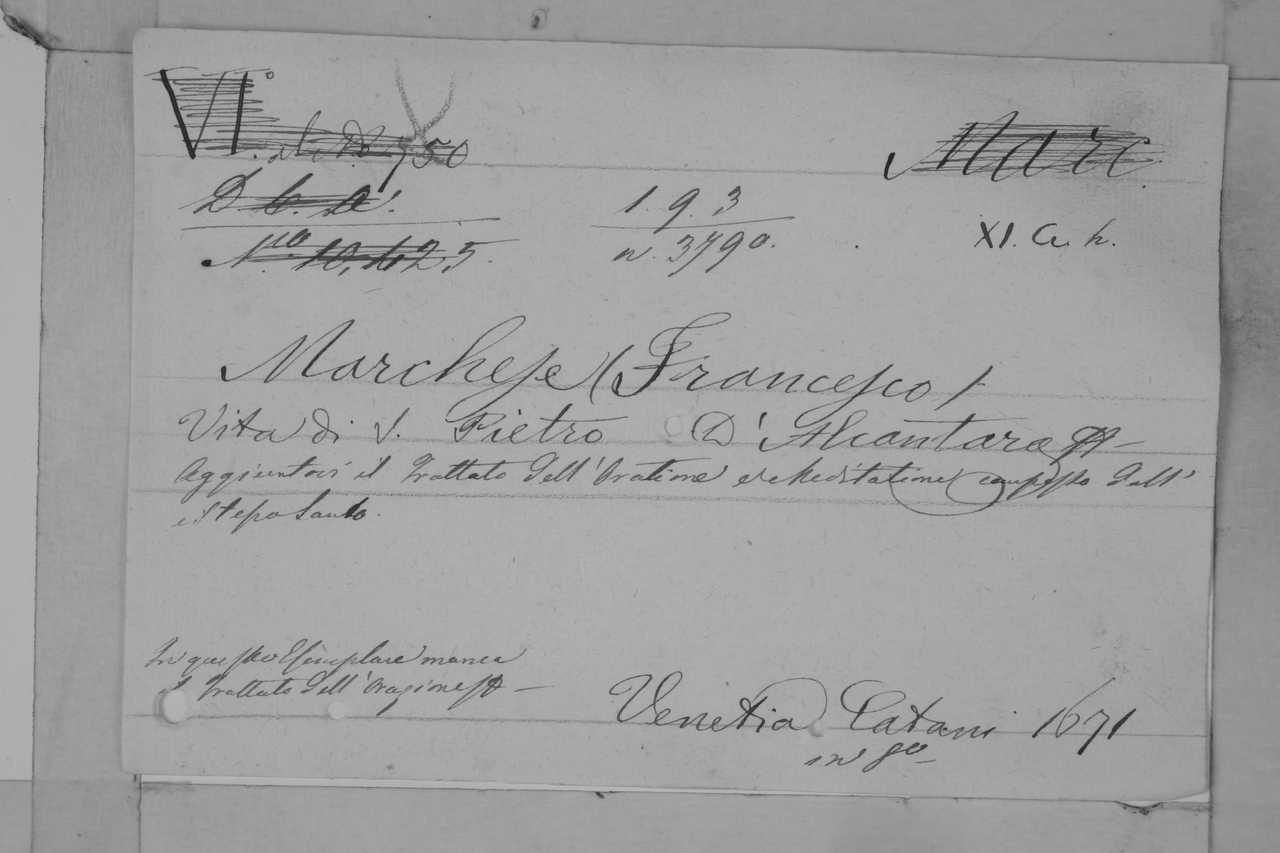 VI.°
750
Marc
D. b. a!
1. 9. 3
N.ro 10,425.
n. 3790.
XI. G. h.
Marchese (Francesco)
Vita di S. Pietro D'Alcantara
Aggiuntovi il Trattato dell'Oratione e Meditatione composto dall'
istesso Santo.
In questo Esemplare manca
il trattato dell'Oragione
Venetia Catani 1671
in 8vo